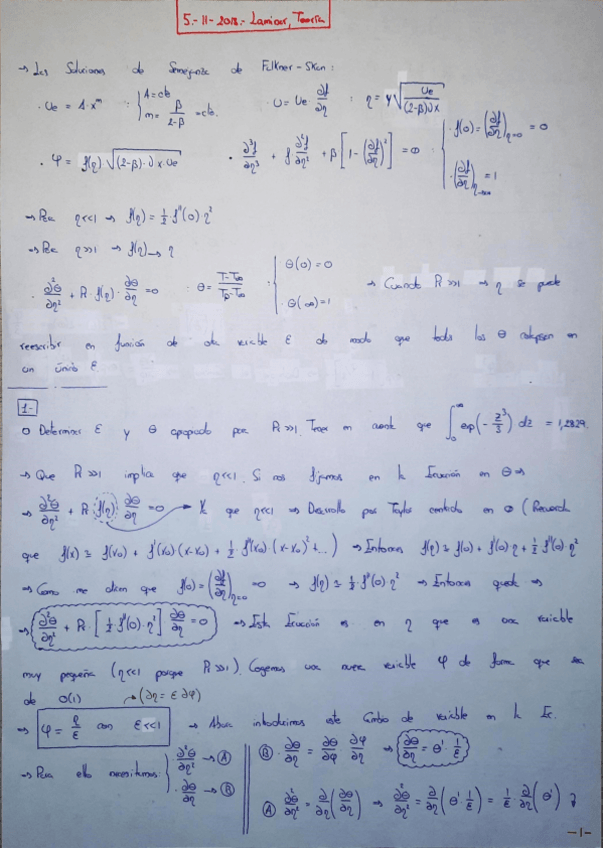 5.-11-2018.- Laminar, Teoría
→ Las Soluciones de Semejanza de Falkner-Skan:
· Ue = A·x^m : { A = cte. m = β/(2-β) = cte. · U = Ue · ∂f/∂η : η = y √(Ue/((2-β)νx))
· φ = f(η) √((2-β)·ν·x·Ue) · ∂³f/∂η³ + f ∂²f/∂η² + β[1 - (∂f/∂η)²] = 0 : { · f(0) = (∂f/∂η)η=0 = 0 · (∂f/∂η)η→∞ = 1
→ Para η<<1 → f(η) = 1/2 · f''(0) η²
→ Para η>>1 → f(η) → η
· ∂²θ/∂η² + R f(η) · ∂θ/∂η = 0 : θ = (T-T∞)/(Tp-T∞) : { · θ(0) = 0 · θ(∞) = 1 → Cuando R>>1 → η se puede
reescribir en función de otra variable ε de modo que todas las θ colapsen en
un único ε
1.-
○ Determinar ε y θ apropiado para R>>1. Tener en cuenta que ∫₀^∞ exp(-z³/3) dz = 1,2879.
→ Que R>>1 implica que η<<1. Si nos fijamos en la Ecuación en θ ⇒
→ ∂²θ/∂η² + R f(η) · ∂θ/∂η = 0 → Ya que η<<1 ⇒ Desarrollo por Taylor centrado en 0 (Recuerda
que f(x) ≅ f(x₀) + f'(x₀)(x-x₀) + 1/2 f''(x₀)(x-x₀)² + ...) → Entonces f(η) ≅ f(0) + f'(0) η + 1/2 f''(0) η²
→ Como me dicen que f(0) = (∂f/∂η)η=0 = 0 → f(η) ≅ 1/2 f''(0) η² → Entonces queda ⇒
→ ∂²θ/∂η² + R · [1/2 f''(0) · η²] ∂θ/∂η = 0 → Esta Ecuación es en η que es una variable
muy pequeña (η<<1 porque R>>1). Cogemos una nueva variable φ de forma que sea
de O(1) → (∂η = ε ∂φ)
→ φ = η/ε con ε<<1 → Ahora introducimos este Cambio de variable en la Ec.
→ Para ello necesitamos: } · ∂²θ/∂η² → Ⓐ · ∂θ/∂η → Ⓑ
Ⓑ · ∂θ/∂η = ∂θ/∂φ ∂φ/∂η → ∂θ/∂η = θ' · 1/ε
Ⓐ ∂²θ/∂η² = ∂/∂η (∂θ/∂η) ⇒ ∂²θ/∂η² = ∂/∂η (θ' 1/ε) = 1/ε · ∂/∂η (θ')
-1-